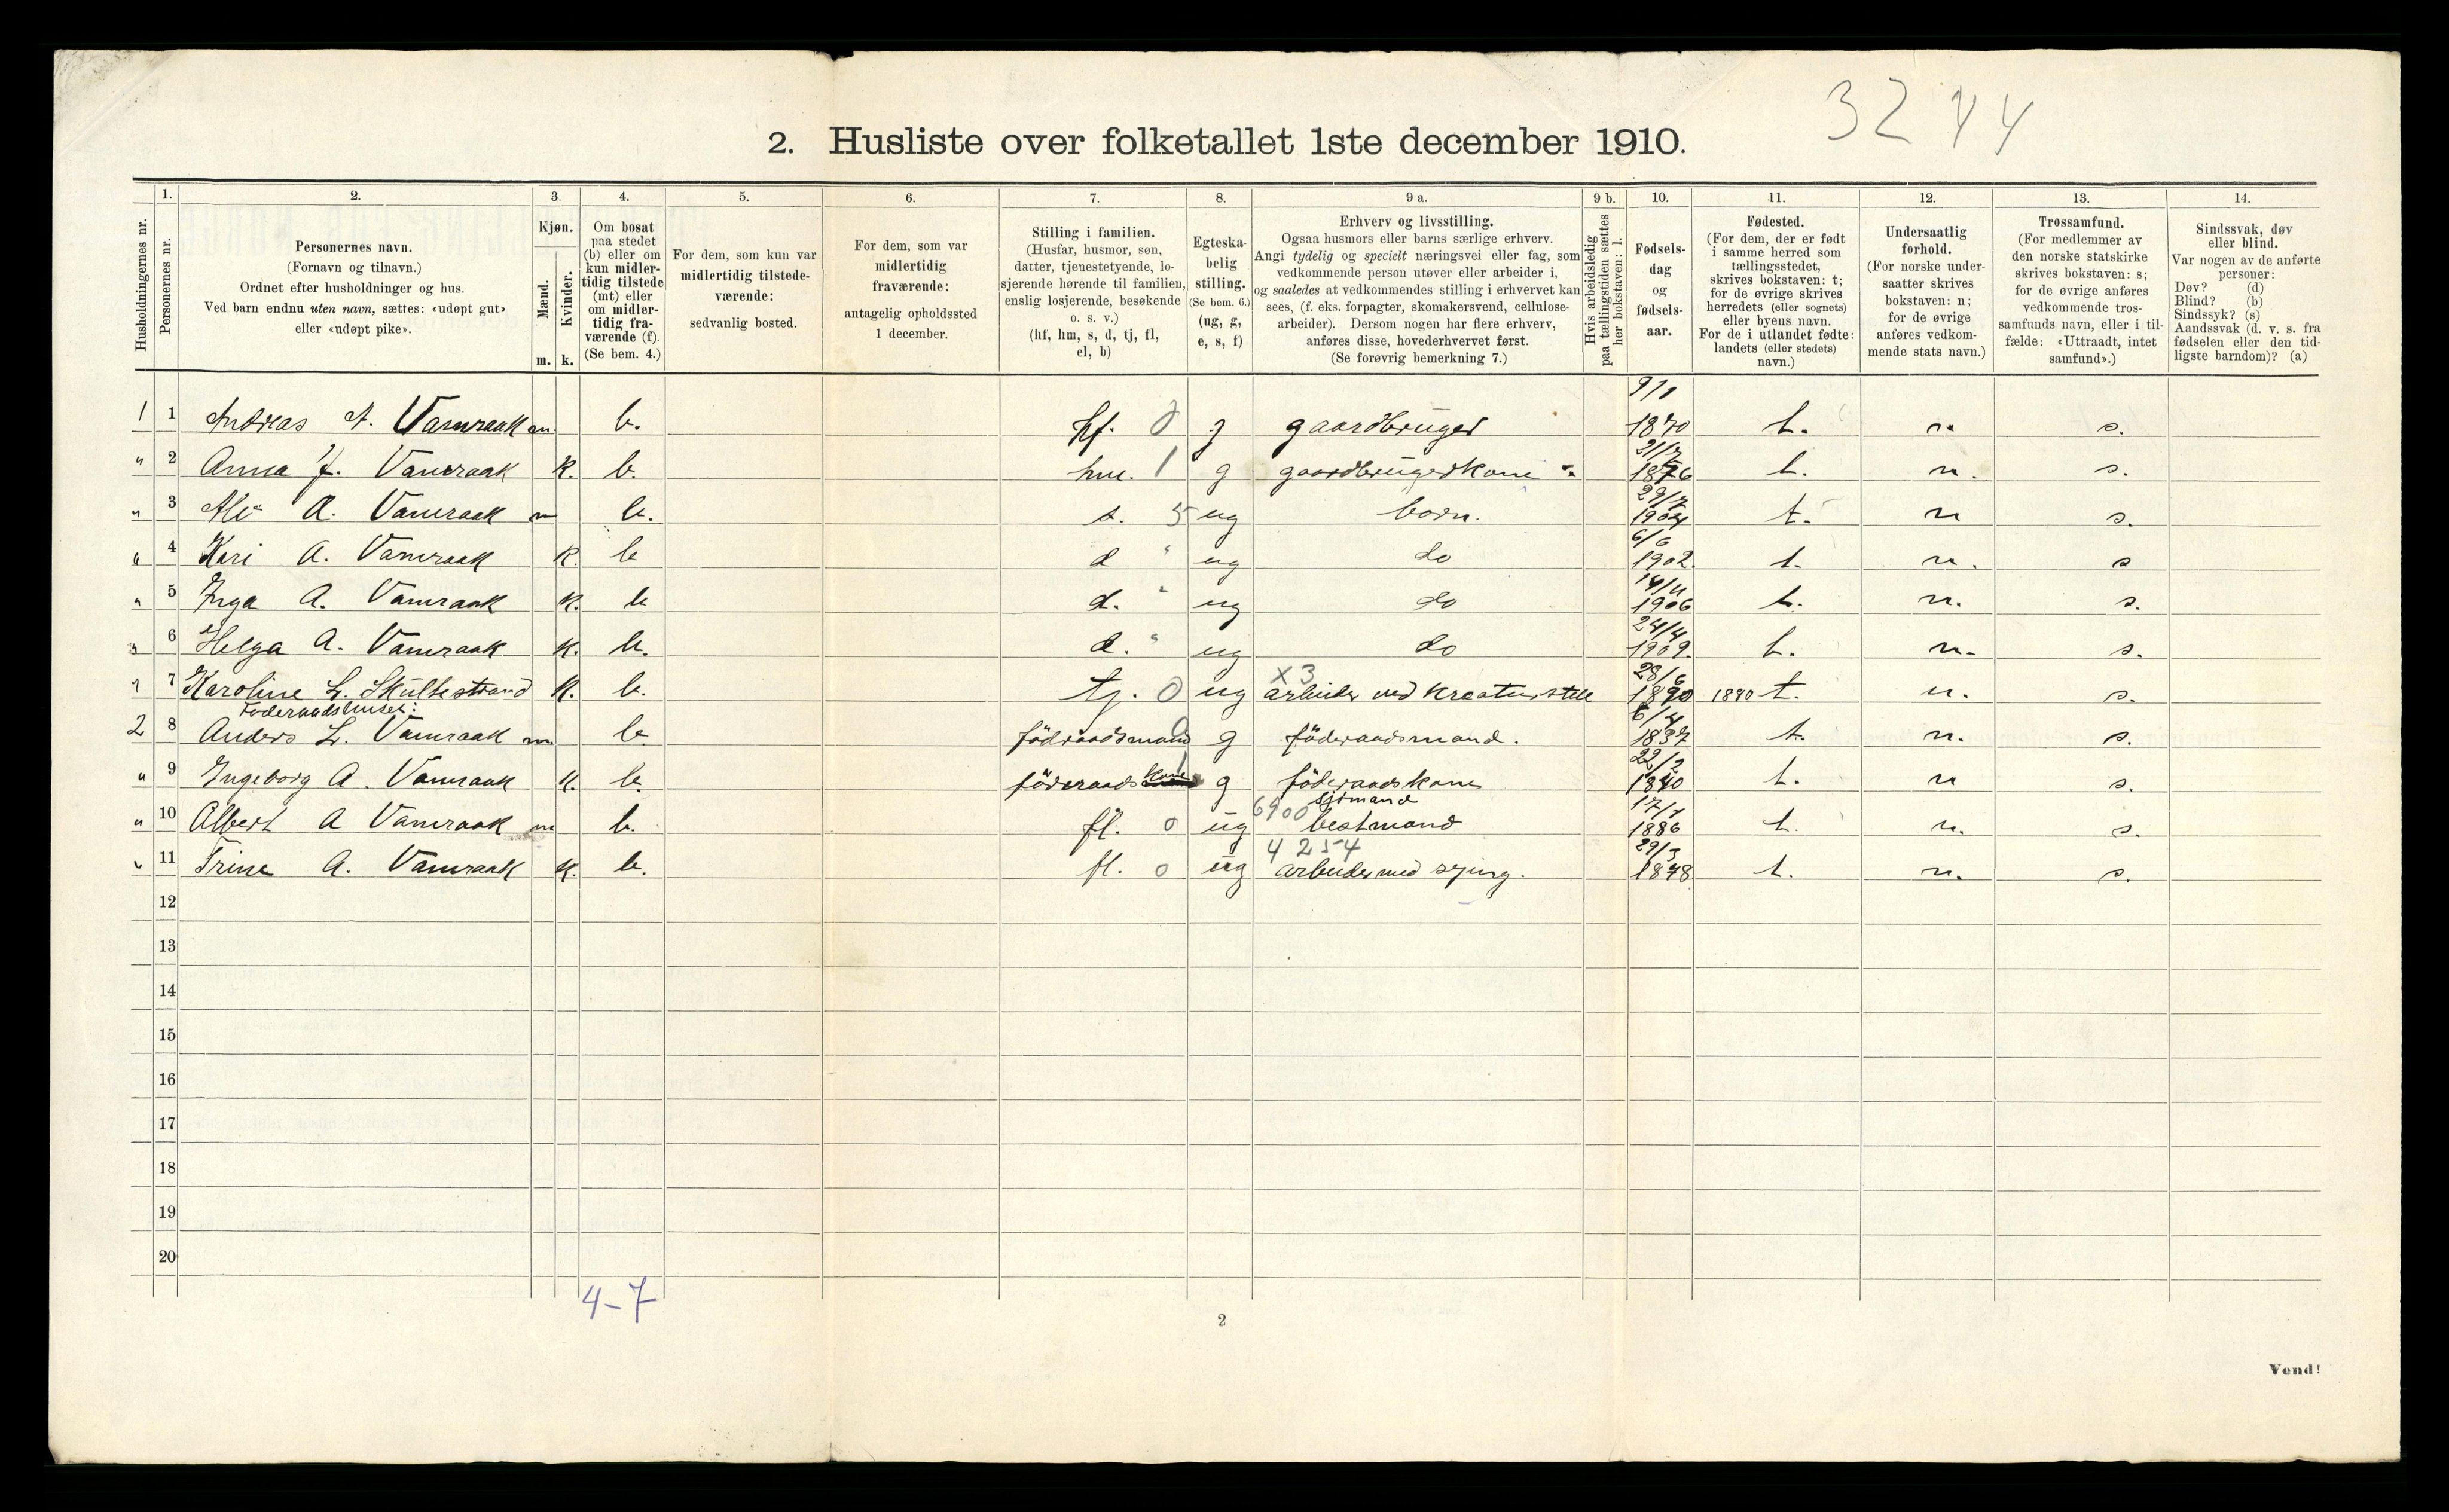 3244
2. Husliste over folketallet 1ste december 1910.
Husholdningernes nr.
1.
Personernes nr.
2.
Personernes navn.
(Fornavn og tilnavn.)
Ordnet efter husholdninger og hus.
Ved barn endnu uten navn, sættes: «udøpt gut»
eller «udøpt pike».
3.
Kjøn.
Mænd.
Kvinder.
m. k.
4.
Om bosat
paa stedet
(b) eller om
kun midler-
tidig tilstede
(mt) eller
om midler-
tidig fra-
værende (f).
(Se bem. 4.)
5.
For dem, som kun var
midlertidig tilstede-
værende:
sedvanlig bosted.
6.
For dem, som var
midlertidig
fraværende:
antagelig opholdssted
1 december.
7.
Stilling i familien.
(Husfar, husmor, søn,
datter, tjenestetyende, lo-
sjerende hørende til familien,
enslig losjerende, besøkende
o. s. v.)
(hf, hm, s, d, tj, fl,
el, b)
8.
Egteska-
belig
stilling.
(Se bem. 6.)
(ug, g,
e, s, f)
9 a.
Erhverv og livsstilling.
Ogsaa husmors eller barns særlige erhverv.
Angi tydelig og specielt næringsvei eller fag, som
vedkommende person utøver eller arbeider i,
og saaledes at vedkommendes stilling i erhvervet kan
sees, (f. eks. forpagter, skomakersvend, cellulose-
arbeider). Dersom nogen har flere erhverv,
anføres disse, hovederhvervet først.
(Se forøvrig bemerkning 7.)
9 b.
Hvis arbeidsledig
paa tællingstiden sættes
her bokstaven: l.
10.
Fødsels-
dag
og
fødsels-
aar.
11.
Fødested.
(For dem, der er født
i samme herred som
tællingsstedet,
skrives bokstaven: t;
for de øvrige skrives
herredets (eller sognets)
eller byens navn.
For de i utlandet fødte:
landets (eller stedets)
navn.)
12.
Undersaatlig
forhold.
(For norske under-
saatter skrives
bokstaven: n;
for de øvrige
anføres vedkom-
mende stats navn.)
13.
Trossamfund.
(For medlemmer av
den norske statskirke
skrives bokstaven: s;
for de øvrige anføres
vedkommende tros-
samfunds navn, eller i til-
fælde: «Uttraadt, intet
samfund».)
14.
Sindssvak, døv
eller blind.
Var nogen av de anførte
personer:
Døv? (d)
Blind? (b)
Sindssyk? (s)
Aandssvak (d. v. s. fra
fødselen eller den tid-
ligste barndom)? (a)
1 1 Andreas A. Vamraak m. b. hf. 0 g gaardbruger 1870 t. n. s.
" 2 Anna J. Vamraak k. b. hm. 1 g gaardbrugerkone 21/7 1876 t. n. s.
" 3 A. Vamraak m b. s. 5 ug barn. 29/7 1904 t. n s.
" 4 Kari A. Vamraak k. b d " ug do 6/6 1902. t. n. s
" 5 Inga A. Vamraak k. b d. " ug do 14/11 1906 t. n. s.
" 6 Helga A. Vamraak k. b. d. " ug do 24/4 1909. t. n. s.
x 3
" 7 Karoline L. Skullestrand k. b. tj. 0 ug arbeider ved kreaturstell 28/6 1890 1890 t. n. s.
Föderaadshuset:
2 8 Anders L. Vamraak m b. födraadsmand 0 g föderaadsmand. 6/4 1837 t. n. s.
" 9 Ingeborg A. Vamraak k. b. föderaadskone 1 g föderaadskone 22/2 1840 t. n s.
6900 sjömand
" 10 Albert A Vamraak m b. fl. 0 ug bestmand 17/7 1886 t. n. s.
4254
" 11 Trine A. Vamraak k. b. fl. 0 ug arbeider med sying. 29/3 1878 t. n. s.
12
13
14
15
16
17
18
19
20
4-7
2
Vend!